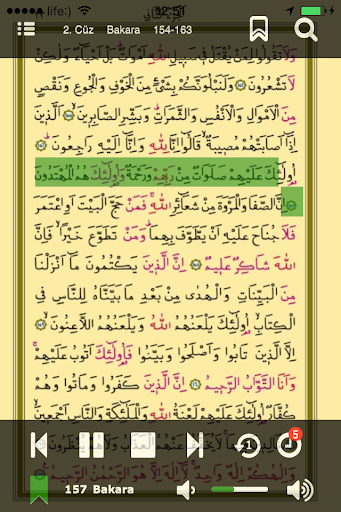 life:)
2. Cüz Bakara 154-163
وَلَا تَقُولُوا لِمَنْ يُقْتَلُ فِي سَبِيلِ اللّٰهِ اَمْوَاتٌ بَلْ اَحْيَاءٌ وَلٰكِنْ
لَا تَشْعُرُونَ وَلَنَبْلُوَنَّكُمْ بِشَيْءٍ مِنَ الْخَوْفِ وَالْجُوعِ وَنَقْصٍ
مِنَ الْاَمْوَالِ وَالْاَنْفُسِ وَالثَّمَرَاتِ وَبَشِّرِ الصَّابِرِينَ اَلَّذِينَ
اِذَا اَصَابَتْهُمْ مُصِيبَةٌ قَالُوا اِنَّا لِلّٰهِ وَاِنَّا اِلَيْهِ رَاجِعُونَ
اُولٰئِكَ عَلَيْهِمْ صَلَوَاتٌ مِنْ رَبِّهِمْ وَرَحْمَةٌ وَاُولٰئِكَ هُمُ الْمُهْتَدُونَ
اِنَّ الصَّفَا وَالْمَرْوَةَ مِنْ شَعَائِرِ اللّٰهِ فَمَنْ حَجَّ الْبَيْتَ اَوِ اعْتَمَرَ
فَلَا جُنَاحَ عَلَيْهِ اَنْ يَطَّوَّفَ بِهِمَا وَمَنْ تَطَوَّعَ خَيْرًا فَاِنَّ
اللّٰهَ شَاكِرٌ عَلِيمٌ اِنَّ الَّذِينَ يَكْتُمُونَ مَا اَنْزَلْنَا
مِنَ الْبَيِّنَاتِ وَالْهُدٰى مِنْ بَعْدِ مَا بَيَّنَّاهُ لِلنَّاسِ فِي
الْكِتَابِ اُولٰئِكَ يَلْعَنُهُمُ اللّٰهُ وَيَلْعَنُهُمُ اللَّاعِنُونَ
اِلَّا الَّذِينَ تَابُوا وَاَصْلَحُوا وَبَيَّنُوا فَاُولٰئِكَ اَتُوبُ عَلَيْهِمْ
وَاَنَا التَّوَّابُ الرَّحِيمُ اِنَّ الَّذِينَ كَفَرُوا وَمَاتُوا وَهُمْ
كُفَّارٌ اُولٰئِكَ عَلَيْهِمْ لَعْنَةُ اللّٰهِ وَالْمَلٰئِكَةِ وَالنَّاسِ اَجْمَعِينَ
عَنْهُمُ الْعَذَابُ وَلَا هُمْ يُنْظَرُونَ
وَاِلٰهُكُمْ اِلٰهٌ وَاحِدٌ لَا اِلٰهَ اِلَّا هُوَ الرَّحْمٰنُ الرَّحِيمُ
1
5
157 Bakara